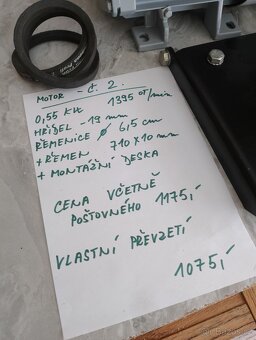 MOTOR - č. 2.
0,55 KW 1395 OT/min
HŘÍDEL - 19 mm
ŘEMENICE ⌀ 6,5 cm
+ ŘEMEN 710 x 10 mm
+ MONTÁŽNÍ DESKA
CENA VČETNĚ
POŠTOVNÉHO 1175,-
VLASTNÍ PŘEVZETÍ
1075,-